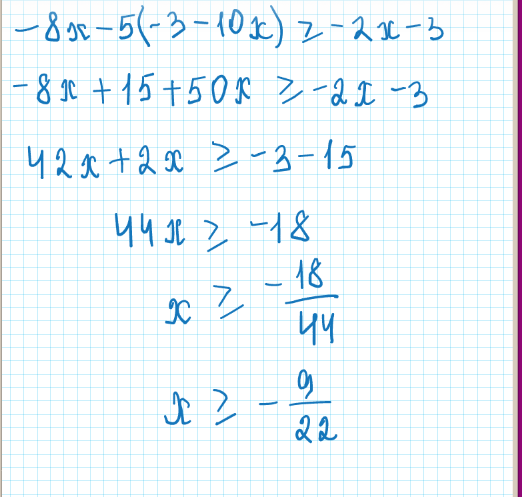 -8x-5(-3-10x) ≥ -2x-3
-8x+15+50x ≥ -2x-3
42x+2x ≥ -3-15
44x ≥ -18
x ≥ -18/44
x ≥ -9/22